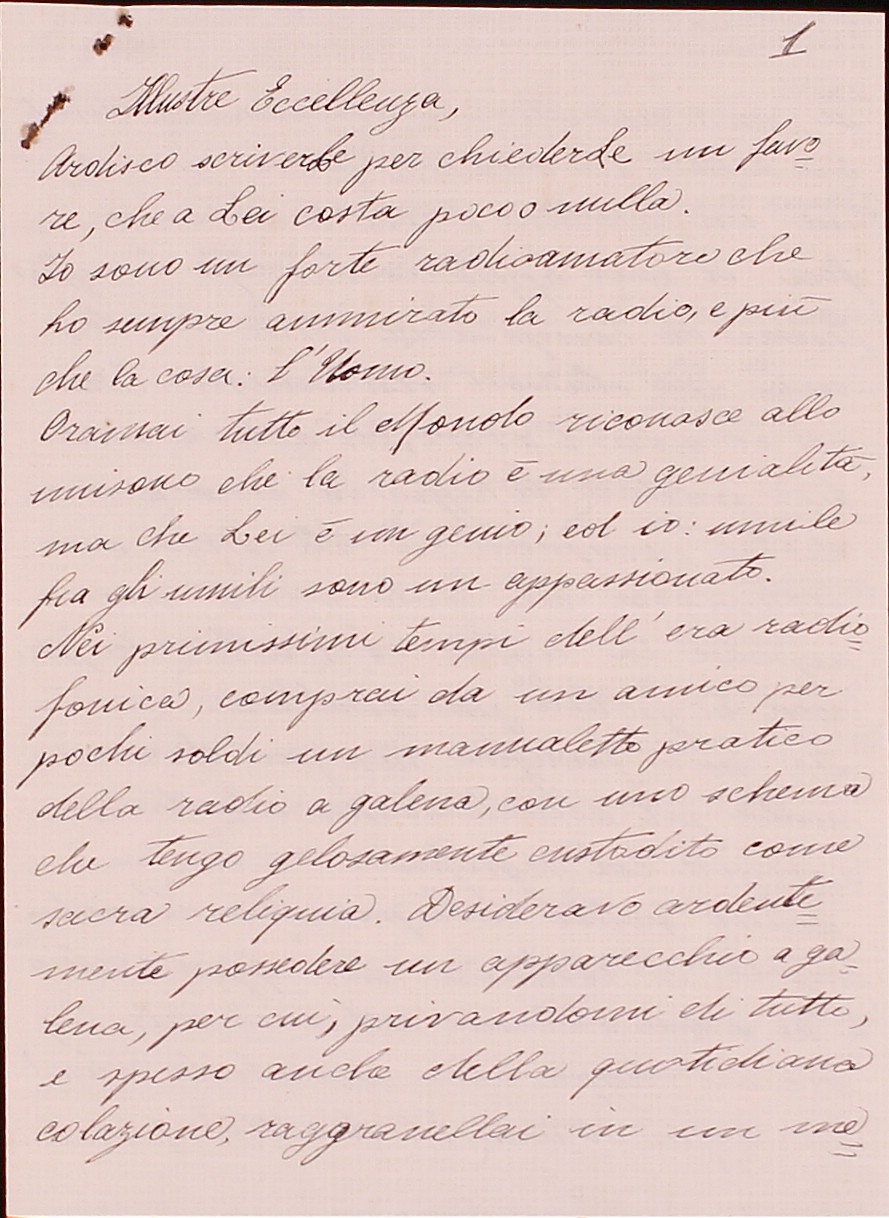 1
Illustre Eccellenza,
Ardisco scriverLe per chiederLe un favo=
re, che a Lei costa poco o nulla.
Io sono un forte radioamatore che
ho sempre ammirato la radio, e più
che la cosa: l'Uomo.
Oramai tutto il Mondo riconosce allo
unisono che la radio è una genialità,
ma che Lei è un genio; ed io: umile
fra gli umili sono un appassionato.
Nei primissimi tempi dell'era radio=
fonica, comprai da un amico per
pochi soldi un manualetto pratico
della radio a galena, con uno schema
che tengo gelosamente custodito come
sacra reliquia. Desideravo ardente=
mente possedere un apparecchio a ga=
lena, per cui, privandomi di tutto,
e spesso anche della quotidiana
colazione, raggranellai in un me=